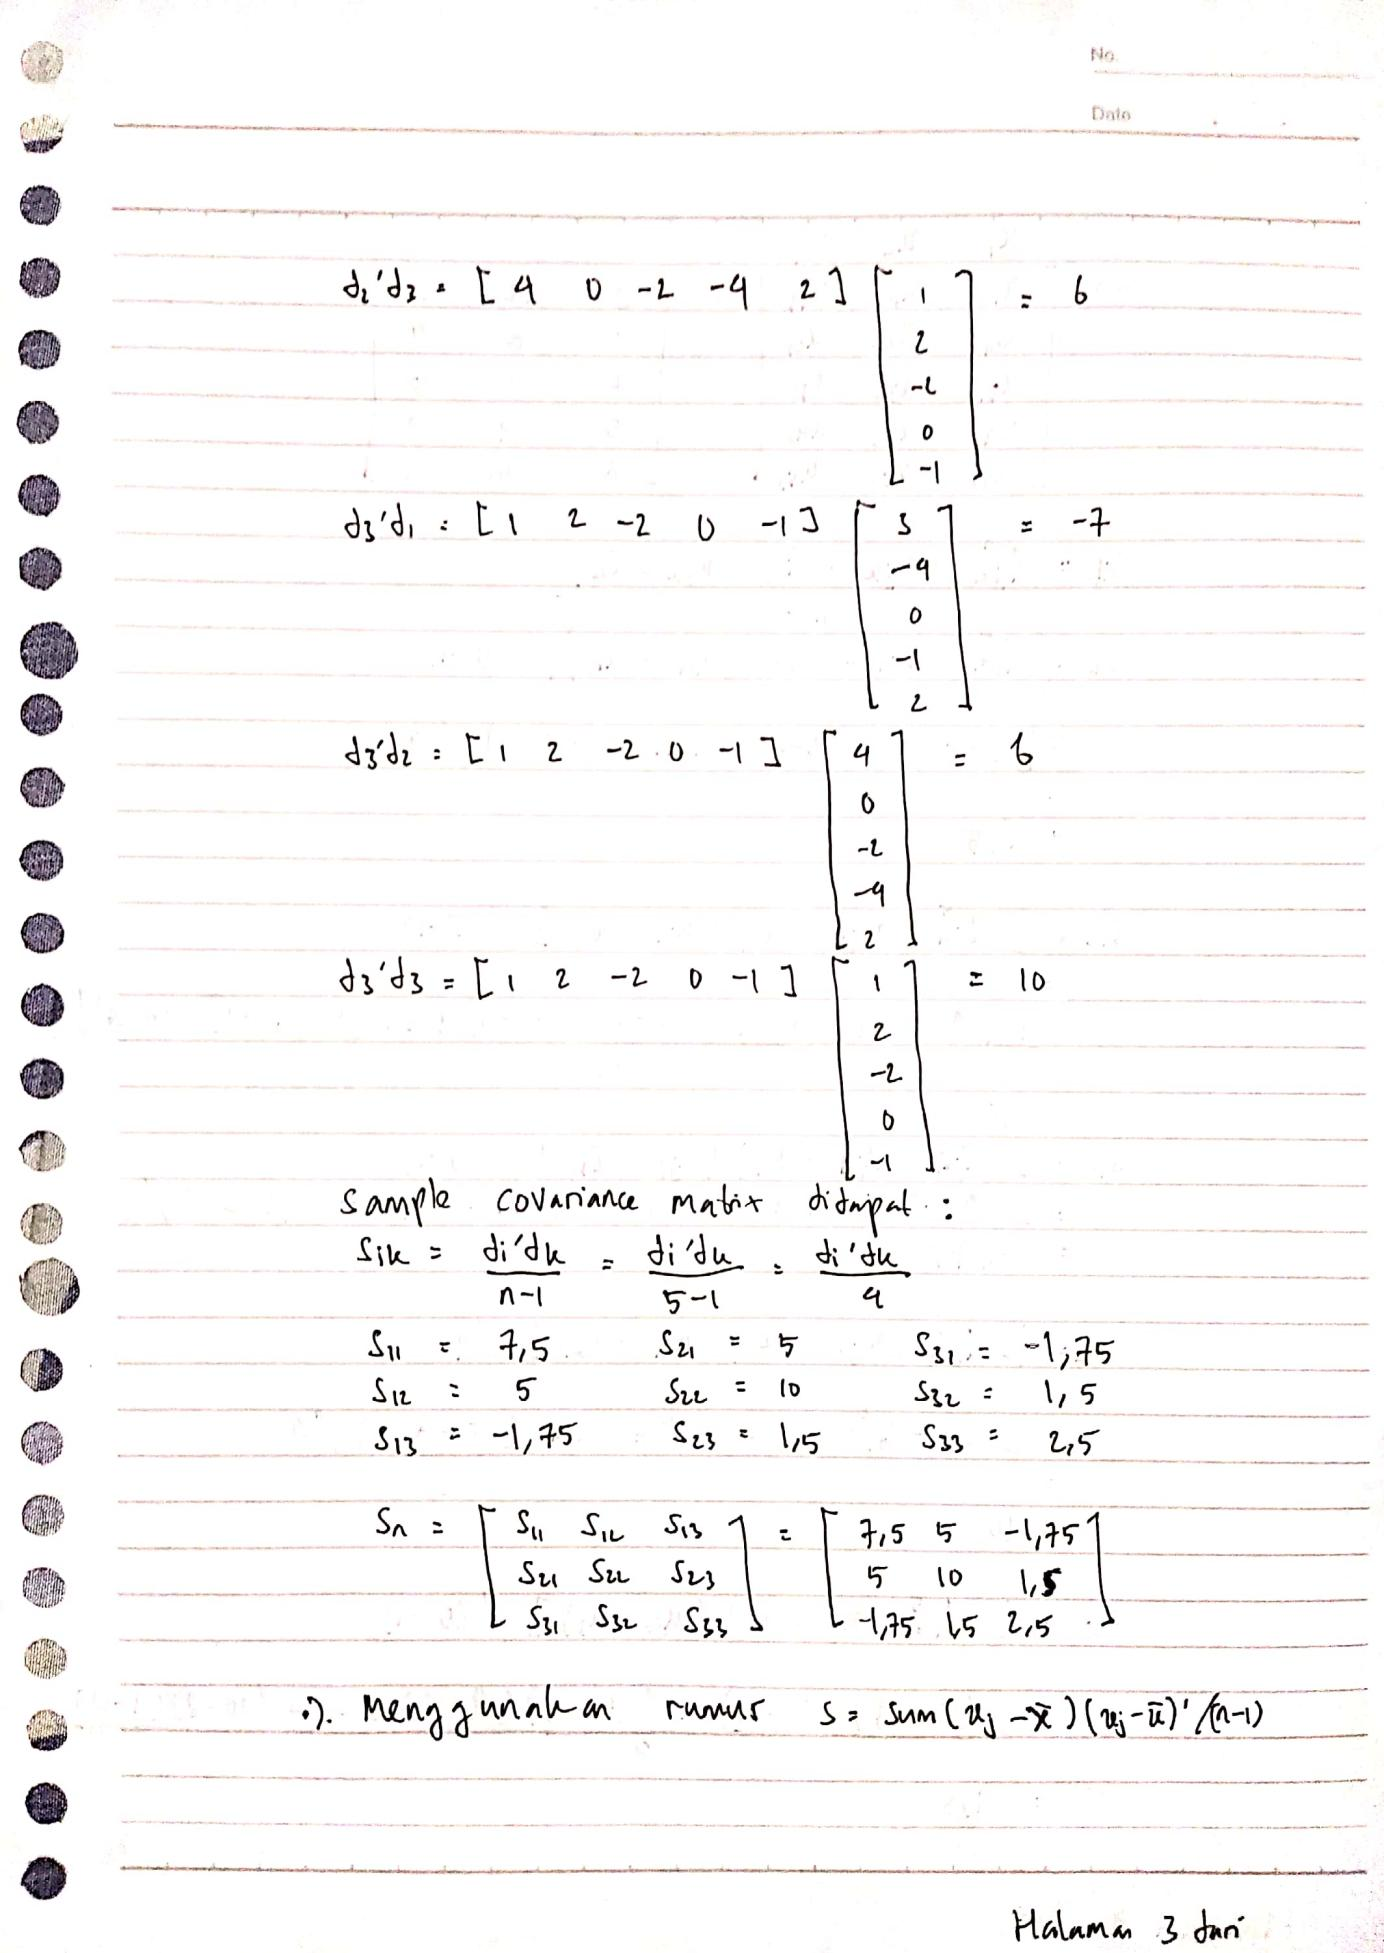 No.
Date
d₂'d₃ = [ 4 0 -2 -4 2 ] [ 1 ] = 6
2
-2
0
-1
d₃'d₁ = [ 1 2 -2 0 -1 ] [ 3 ] = -7
-4
0
-1
2
d₃'d₂ = [ 1 2 -2 0 -1 ] [ 4 ] = 6
0
-2
-4
2
d₃'d₃ = [ 1 2 -2 0 -1 ] [ 1 ] = 10
2
-2
0
-1
Sample covariance matrix didapat :
Sik = di'dk / n-1 = di'dk / 5-1 = di'dk / 4
S₁₁ = 7,5 S₂₁ = 5 S₃₁ = -1,75
S₁₂ = 5 S₂₂ = 10 S₃₂ = 1,5
S₁₃ = -1,75 S₂₃ = 1,5 S₃₃ = 2,5
Sn = [ S₁₁ S₁₂ S₁₃ ] = [ 7,5 5 -1,75 ]
S₂₁ S₂₂ S₂₃ 5 10 1,5
S₃₁ S₃₂ S₃₃ -1,75 1,5 2,5
•). Menggunakan rumus S = sum (xj - x̄)(xj - x̄)' /(n-1)
Halaman 3 dari